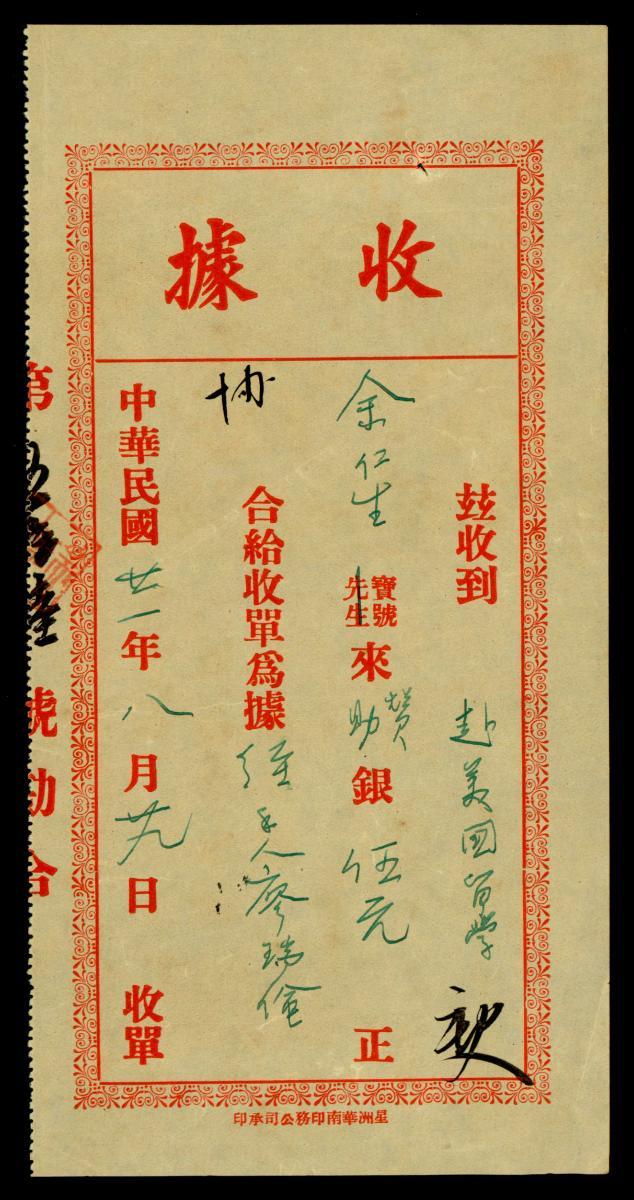 收據
玆收到 赴美國留學
余仁生 寶號先生 來 贊助 銀 伍元 正
合給收單爲據 經手人廖瑞
中華民國廿一年八月廿九日 收單
第 號勷合
星洲華南印務公司承印